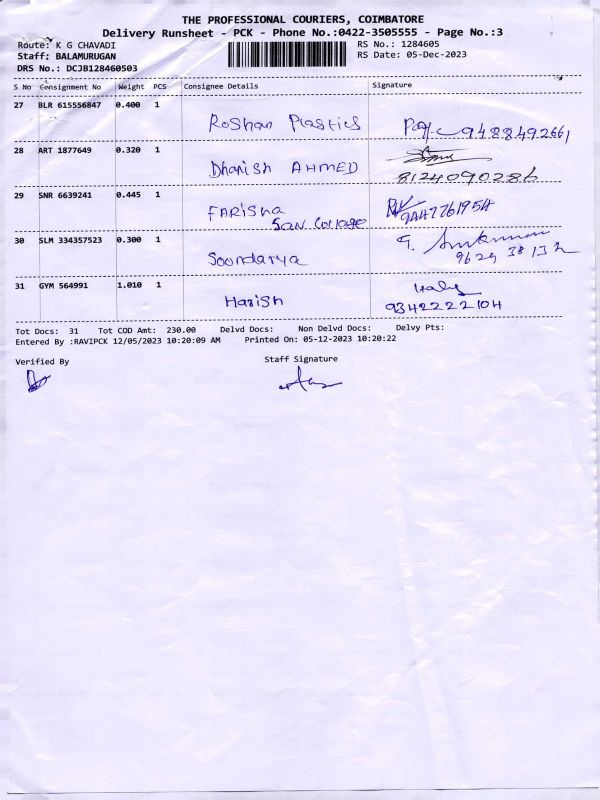 THE PROFESSIONAL COURIERS, COIMBATORE
Delivery Runsheet - PCK - Phone No.:0422-3505555 - Page No.:3
Route: K G CHAVADI RS No.: 1284605
Staff: BALAMURUGAN RS Date: 05-Dec-2023
DRS No.: DCJB128460503
S No Consignment No Weight PCS Consignee Details Signature
27 BLR 615556847 0.400 1
Roshan Plastics 9488492661
28 ART 1877649 0.320 1
Dhanish AHMED
8124090286
29 SNR 6639241 0.445 1
FARISHA 9447761954
San College
30 SLM 334357523 0.300 1
Soondarya 9629 38 13 2
31 GYM 564991 1.010 1
Harish 9342222104
Tot Docs: 31 Tot COD Amt: 230.00 Delvd Docs: Non Delvd Docs: Delvy Pts:
Entered By :RAVIPCK 12/05/2023 10:20:09 AM Printed On: 05-12-2023 10:20:22
Verified By Staff Signature